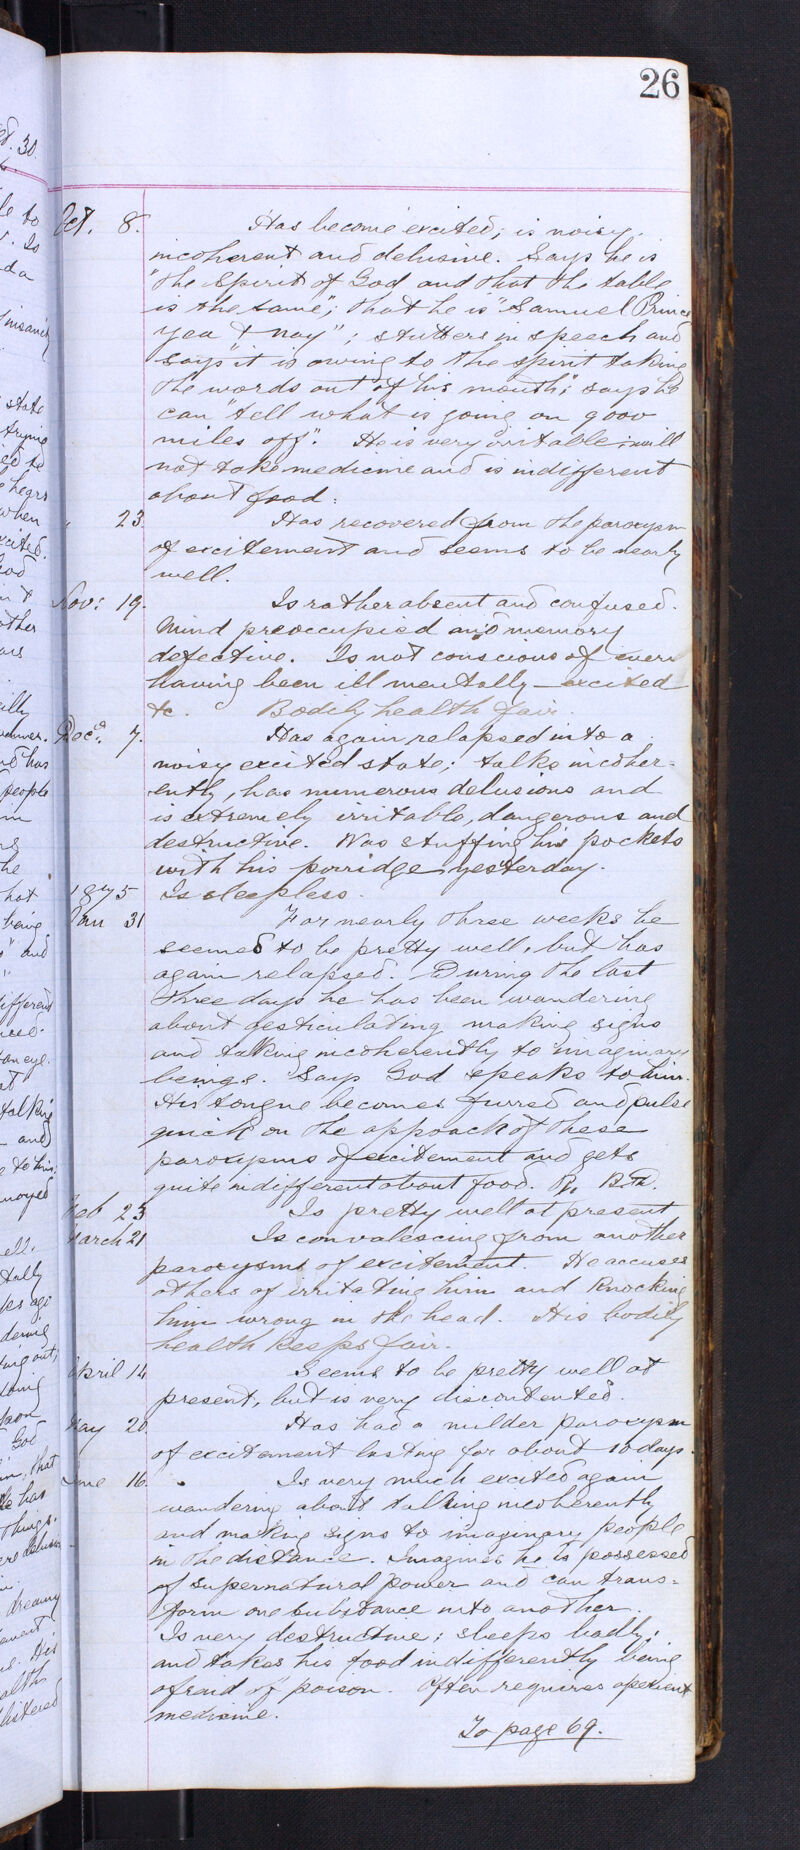 26
Oct. 8. Has become excited; is noisy,
incoherent and delusive. Says he is
"the Spirit of God and that the table
is the same"; that he is "Samuel Prince
yea & nay"; stutters in speech and
says "it is owing to the spirit taking
the words out of his mouth"; says he
can "tell what is going on 9000
miles off". He is very irritable; will
not take medicine and is indifferent
about food.
" 23. Has recovered from the paroxysm
of excitement and seems to be nearly
well.
Nov: 19. Is rather absent and confused.
Mind preoccupied and memory
defective. Is not conscious of ever
having been ill mentally—excited
&c. Bodily health fair.
Dec. 7. Has again relapsed into a
noisy excited state; talks incoher=
ently, has numerous delusions and
is extremely irritable, dangerous and
destructive. Was stuffing his pockets
with his porridge yesterday.
Is sleepless.
Jan 31 For nearly three weeks he
seemed to be pretty well, but has
again relapsed. During the last
three days he has been wandering
about gesticulating making signs
and talking incoherently to imaginary
beings. Says God speaks to him.
His tongue becomes furred and pulse
quick on the appoach of these
paroxysms of excitement and gets
quite indifferent about food.
Feb 23 Is pretty well at present
March 21 Is convalescing from another
paroxysms of excitement. He accuses
others of irritating him and knocking
him wrong in the head. His bodily
health keeps fair.
April 14 Seems to be pretty well at
present, but is very discontented.
May 20. Has had a milder paroxysm
of excitement lasting for about 10 days.
June 16. Is very much excited again
wandering about talking incoherently
and making signs to imaginary people
in the distance. Imagines he is possessed
of supernatural power and can trans=
form one substance into another.
Is very destructive; sleeps badly;
and takes his food indifferently being
afraid of "poison. Often requires aperient
medicine.
To page 69.